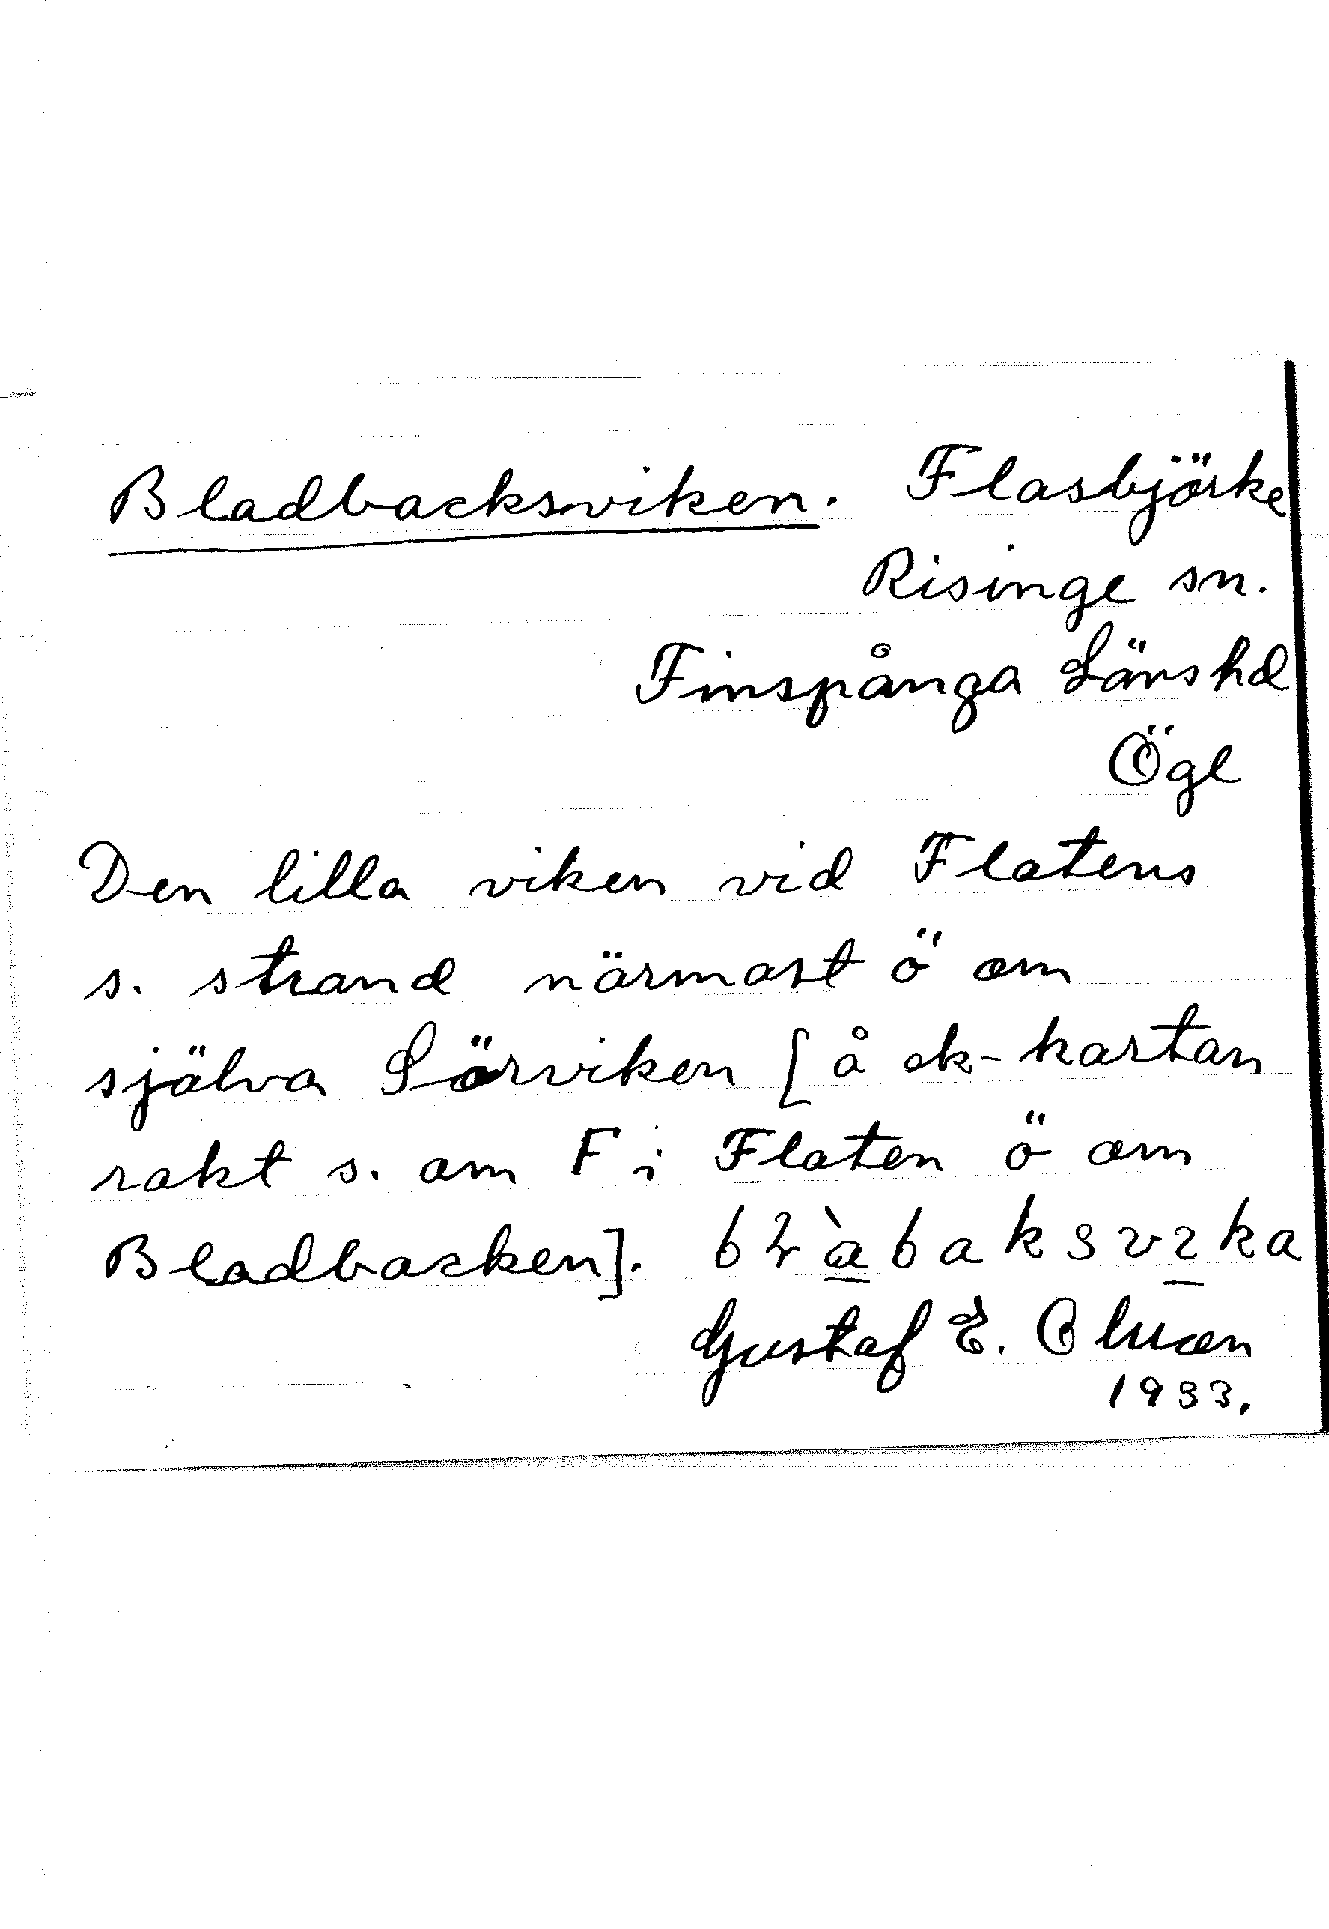 Bladbacksviken. Flasbjörke
Risinge sn.
Finspånga Länshd
Ögl
Den lilla viken vid Flatens
s. strand närmast ö om
själva Sörviken [å ek-kartan
rakt s. om F i Flaten ö om
Bladbacken].
Gustaf E.
1933.